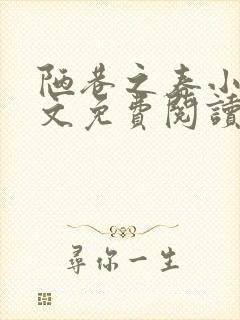 陋巷之春小
文免費閱讀
尋你一生